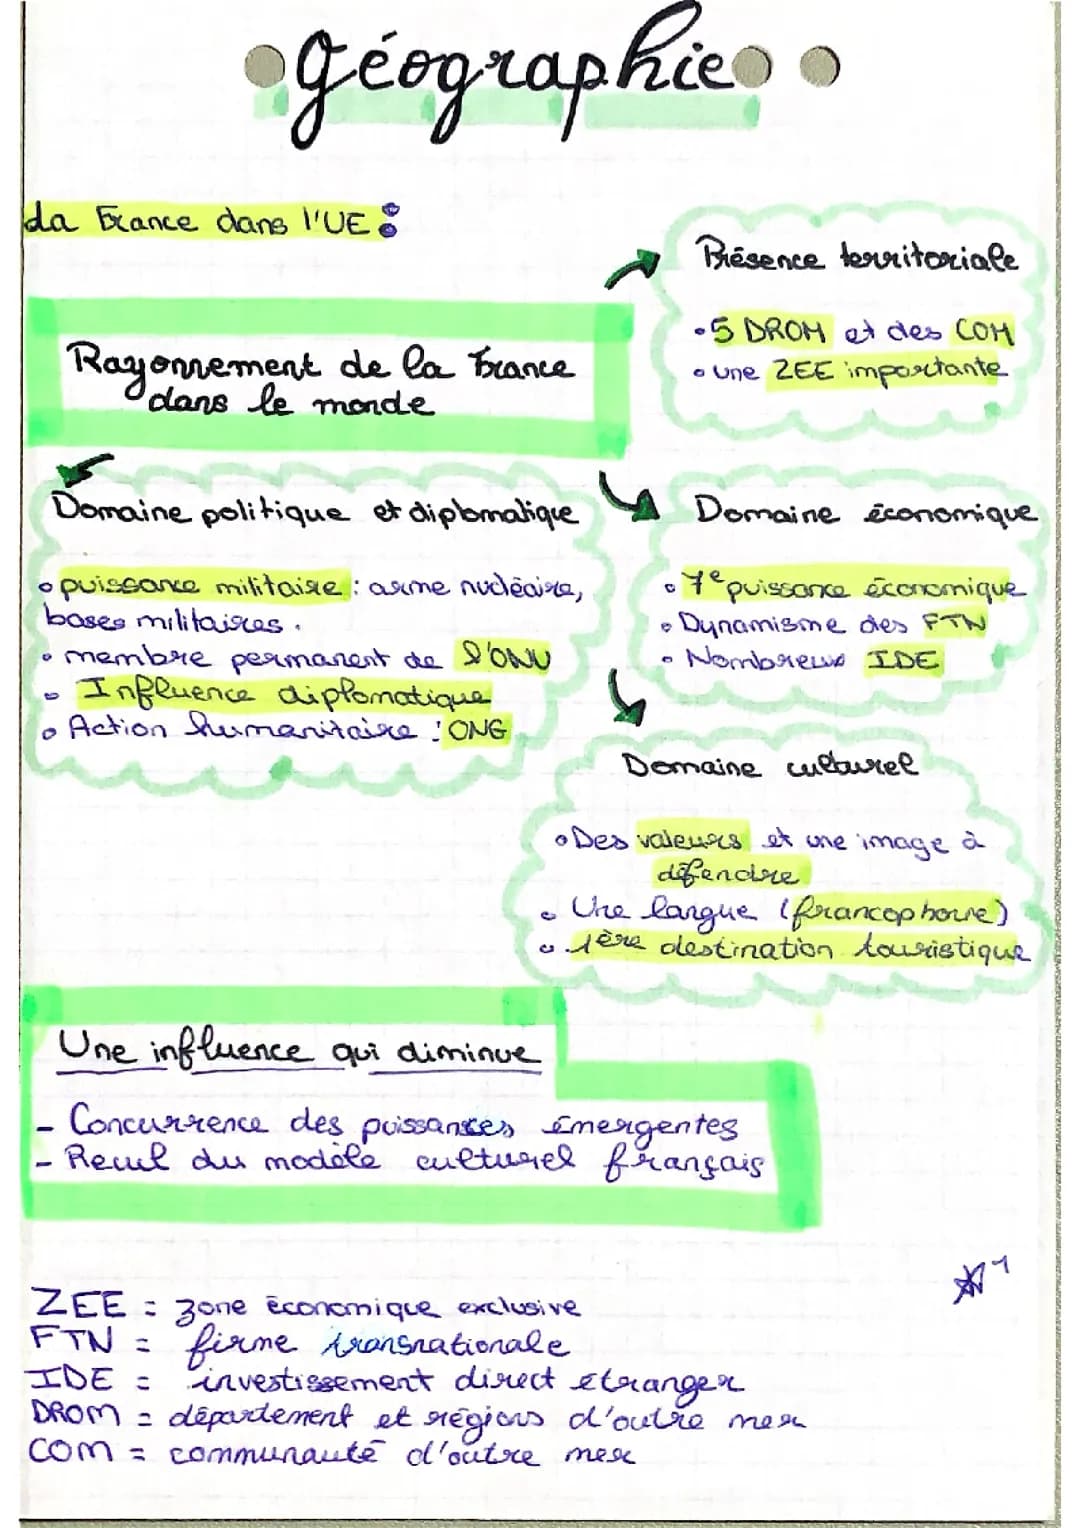 Géographie
La France dans l'UE :
Rayonnement de la France
dans le monde
Présence territoriale
• 5 DROM et des COM
• une ZEE importante
Domaine politique et diplomatique
• puissance militaire : arme nucléaire,
bases militaires.
• membre permanent de l'ONU
• Influence diplomatique
• Action humanitaire : ONG
Domaine économique
• 7e puissance économique
• Dynamisme des FTN
• Nombreux IDE
Domaine culturel
• Des valeurs et une image à
défendre
• Une langue (francophonie)
• 1ère destination touristique
Une influence qui diminue
- Concurrence des puissances émergentes
- Recul du modèle culturel français
1
ZEE = zone économique exclusive
FTN = firme transnationale
IDE = investissement direct étranger
DROM = département et régions d'outre mer
COM = communauté d'outre mer